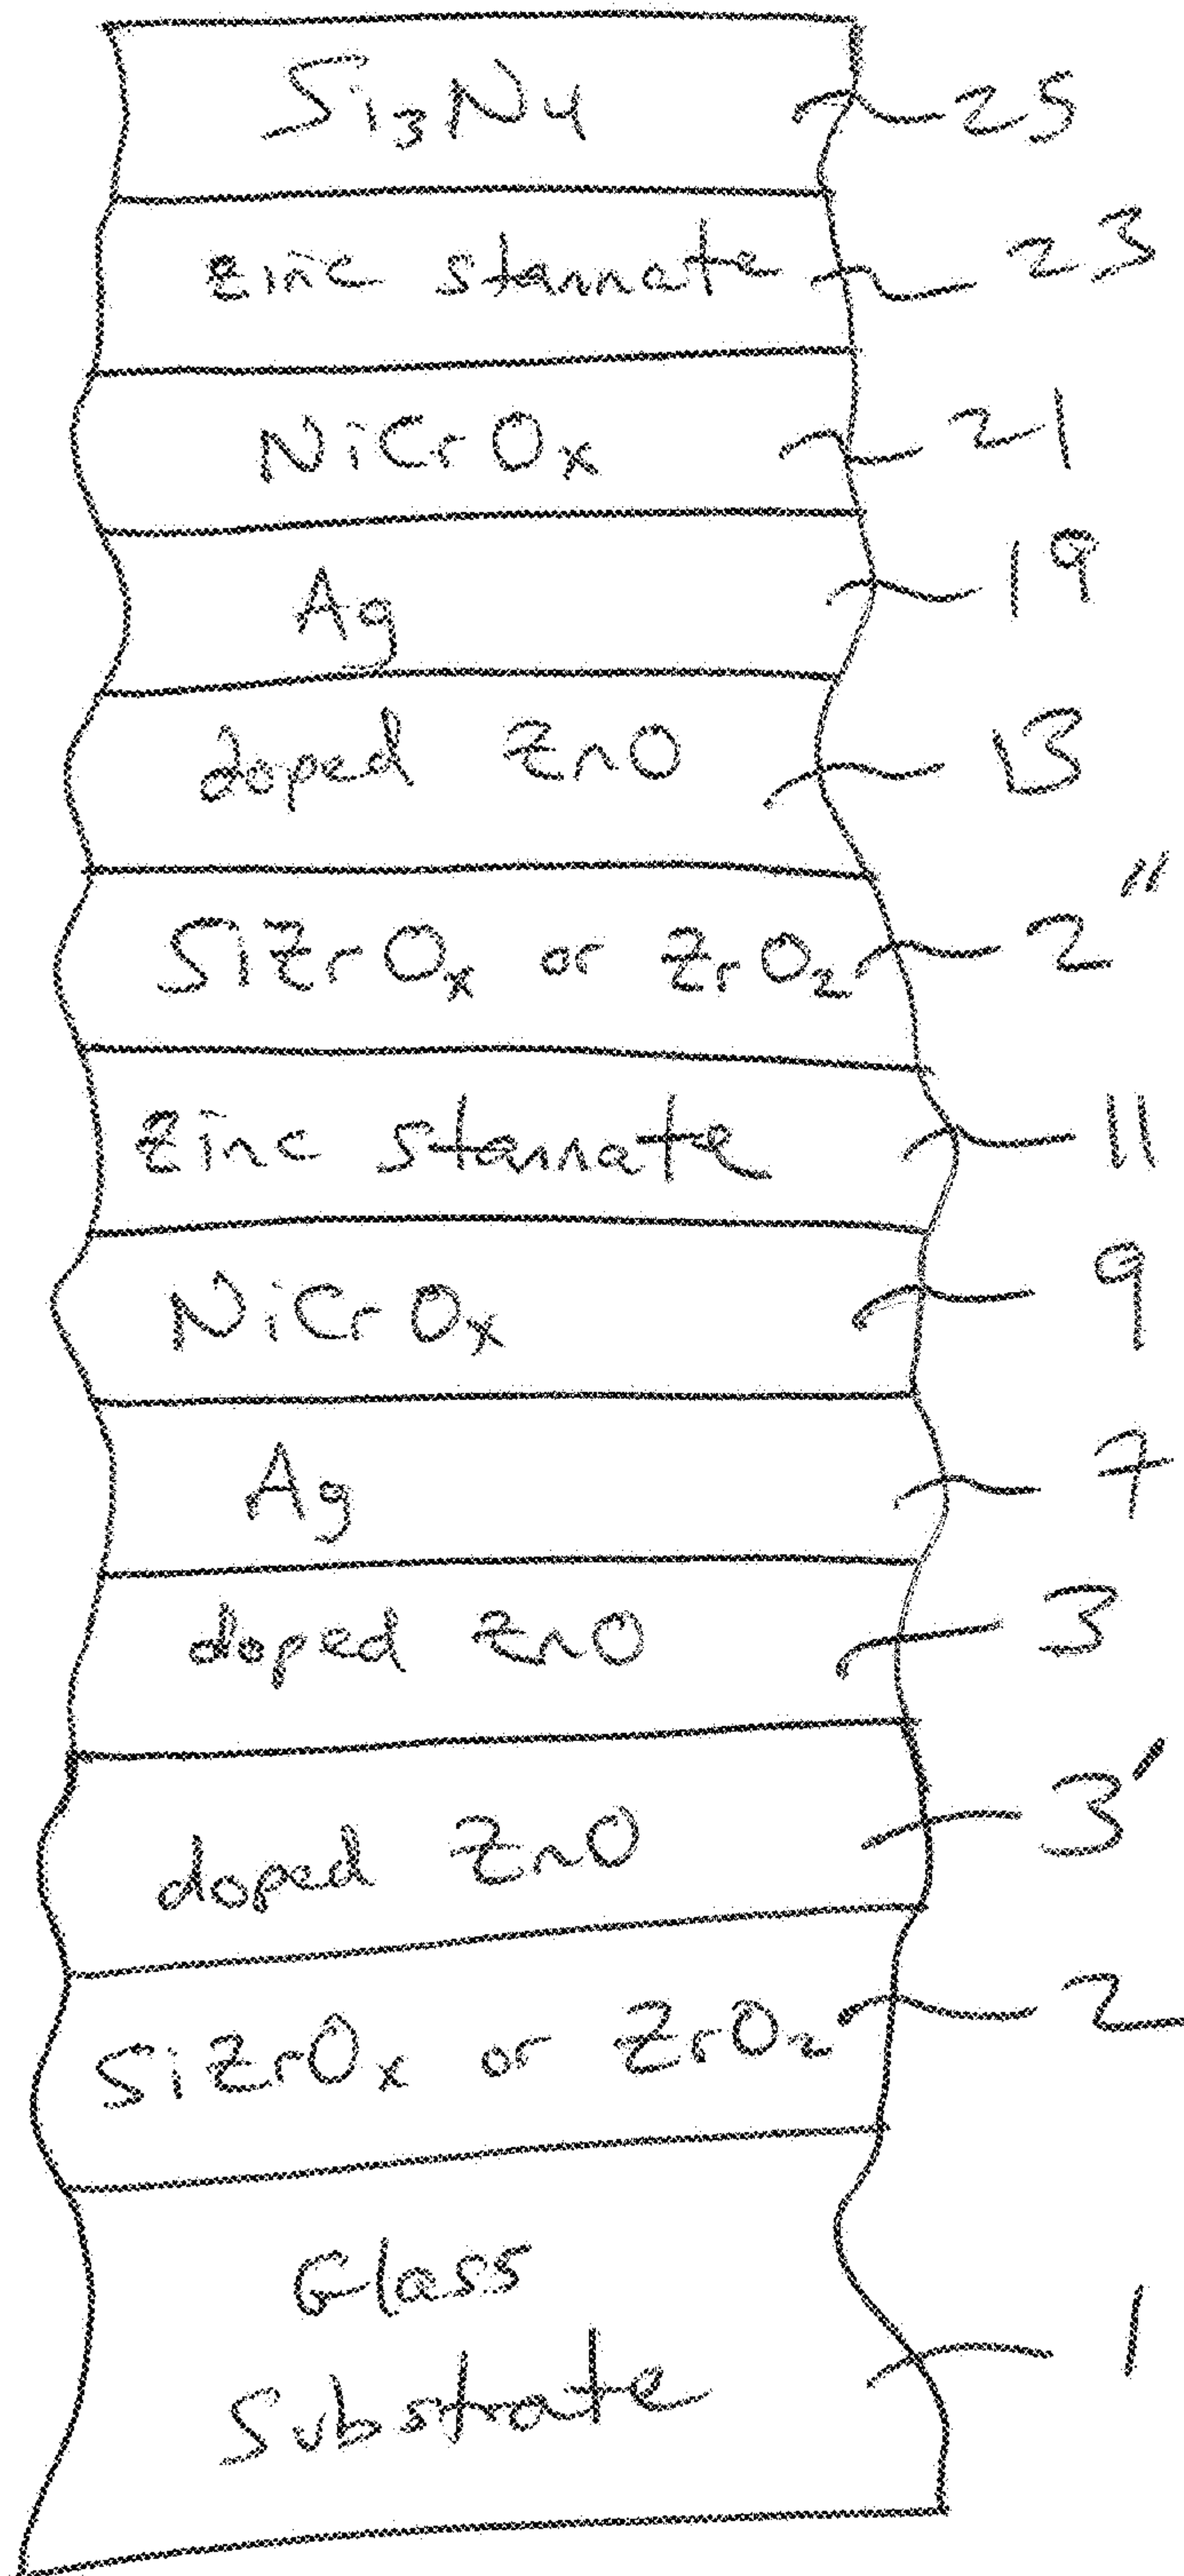 Si3N4 25
zinc stannate 23
NiCrOx 21
Ag 19
doped ZnO 13
SiZrOx or ZrO2 2"
zinc stannate 11
NiCrOx 9
Ag 7
doped ZnO 3
doped ZnO 3'
SiZrOx or ZrO2 2
Glass
Substrate 1